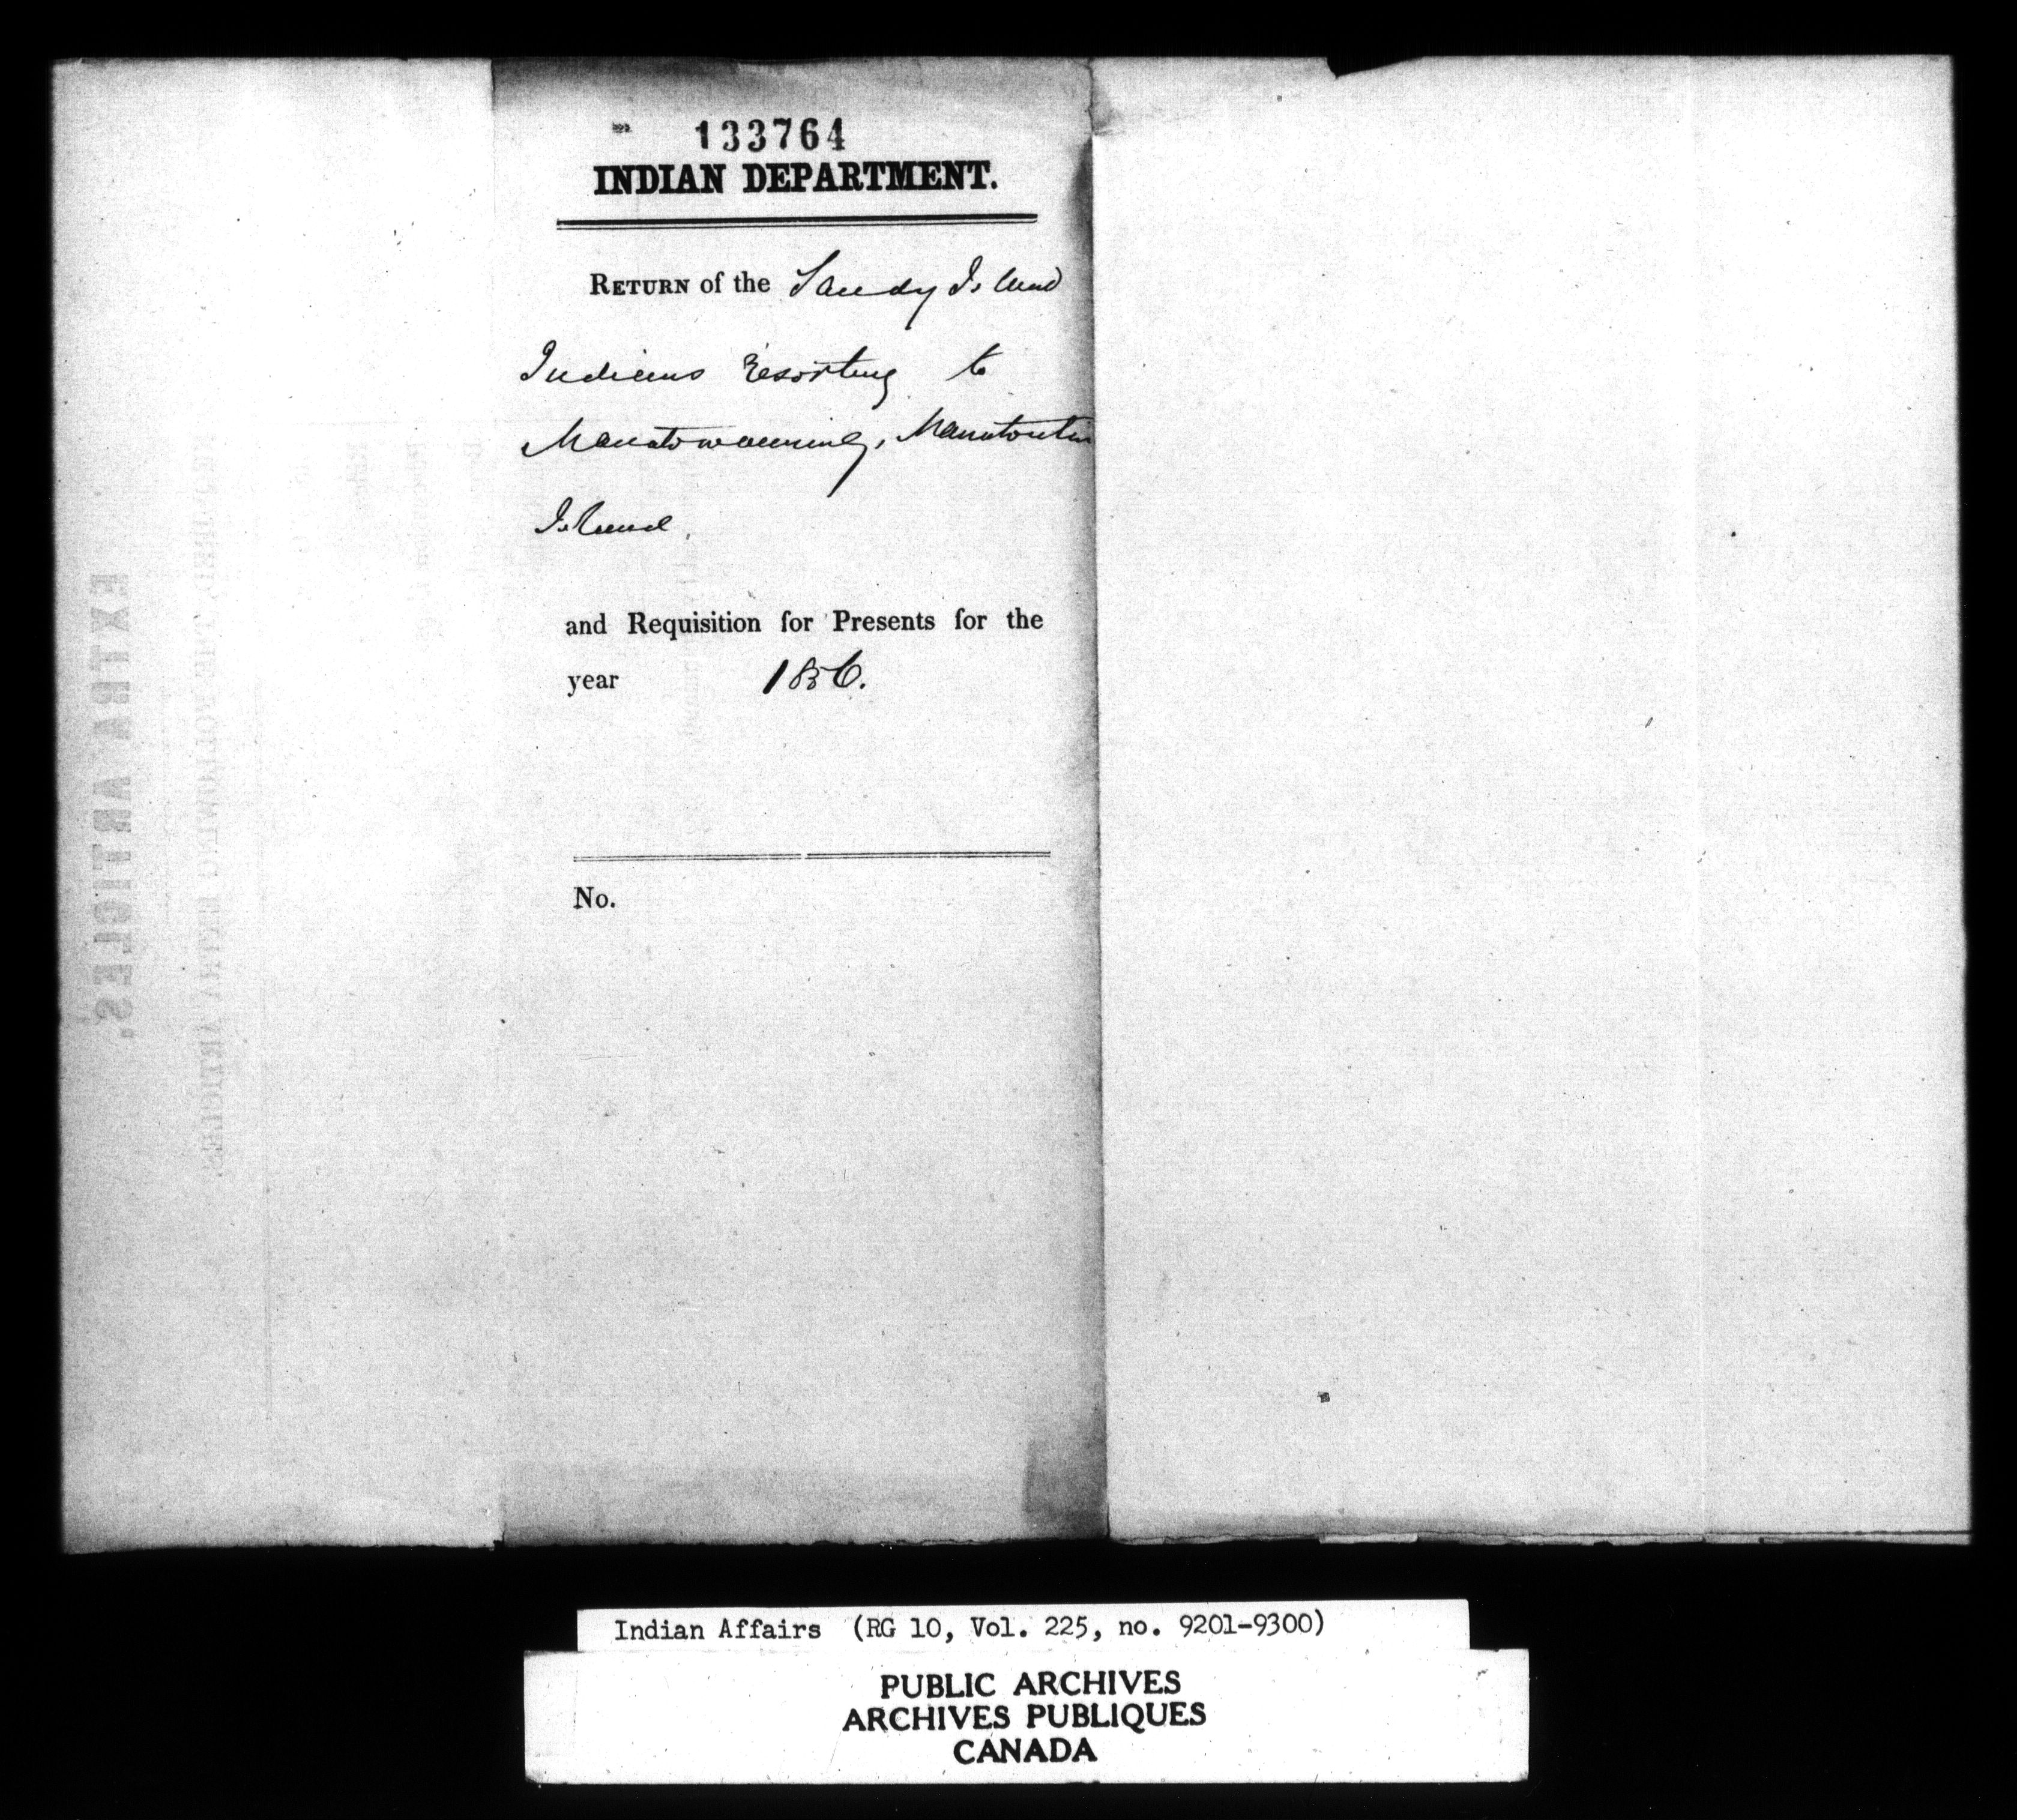 133764
INDIAN DEPARTMENT.
RETURN of the Sandy Island
Indians resorting to
Manatowanning, Manatoulin
Island.
and Requisition for Presents for the
year 1856.
No.
EXTRA ARTICLES.
REQUIRED, THE FOLLOWING EXTRA ARTICLES.
Indian Affairs (RG 10, Vol. 225, no. 9201-9300)
PUBLIC ARCHIVES
ARCHIVES PUBLIQUES
CANADA